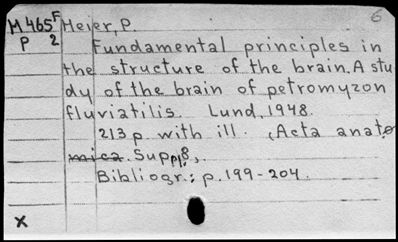 6
M 465F Heier, P.
P 2 Fundamental principles in
the structure of the brain. A stu
dy of the brain of petromyzon
fluviatilis. Lund, 1948.
213 p. with ill. (Acta anato
mica. Suppl 8,
Bibliogr.: p. 199-204.
X